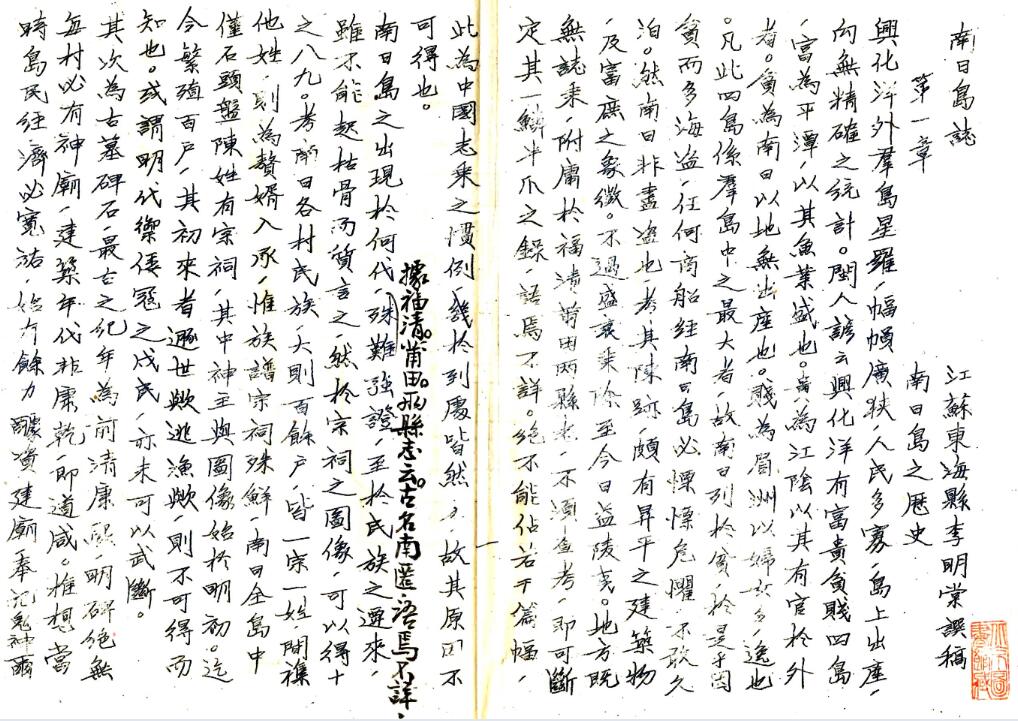 南日島誌
江蘇東海縣李明棠譔稿
第一章 南日島之歷史
興化洋外羣島星羅,幅幀廣狹,人民多寡,島上出産,
向無精確之統計。閩人諺云興化洋有富貴貧賤四島
,富為平潭,以其魚業盛也。貴為江陰以其有官於外
者。貧為南日以地無出産也。賤為眉洲以婦女多逸也
。凡此四島係羣島中之最大者,故南日列於貧,於是乎因
貧而多海盜,任何商船經南日島必慄慄危懼,不敢久
泊。然南日非盡盜也,考其陳跡,頗有昇平之建築物
,及富庶之象徵。不過盛衰乘除,至今日益陵夷。地方既
無誌乘,附庸於福清莆田兩縣志,不須查考,即可斷
定其一鱗半爪之錄,語焉不詳。絕不能佔若干篇幅,
此為中國志乘之慣例,幾於到處皆然,故其原因不
可得也。
據福清。莆田。兩縣志云。古名南匿。語焉不詳,
南日島之出現於何代,殊難強證,至於民族之遷來,
雖不能起枯骨而質言之,然於宗祠之圖像,可以得十
之八九。考南日各村民族,大則百餘户,皆一宗一姓,間襍
他姓,則為贅婿入承,惟族譜宗祠殊鮮,南日全島中
僅石頭盤陳姓有宗祠,其中神主與圖像始於明初。迄
今繁殖百户,其初來者遯世歟逃漁歟,則不可得而
知也。或謂明代禦倭冦之戍民,亦未可以武斷。
其次為古墓碑石,最古之紀年為前清康熙,明碑絕無
每村必有神廟,建築年代非康乾,即道咸。推想當
時島民經濟必寬裕,始有餘力醵資建廟奉祀鬼神